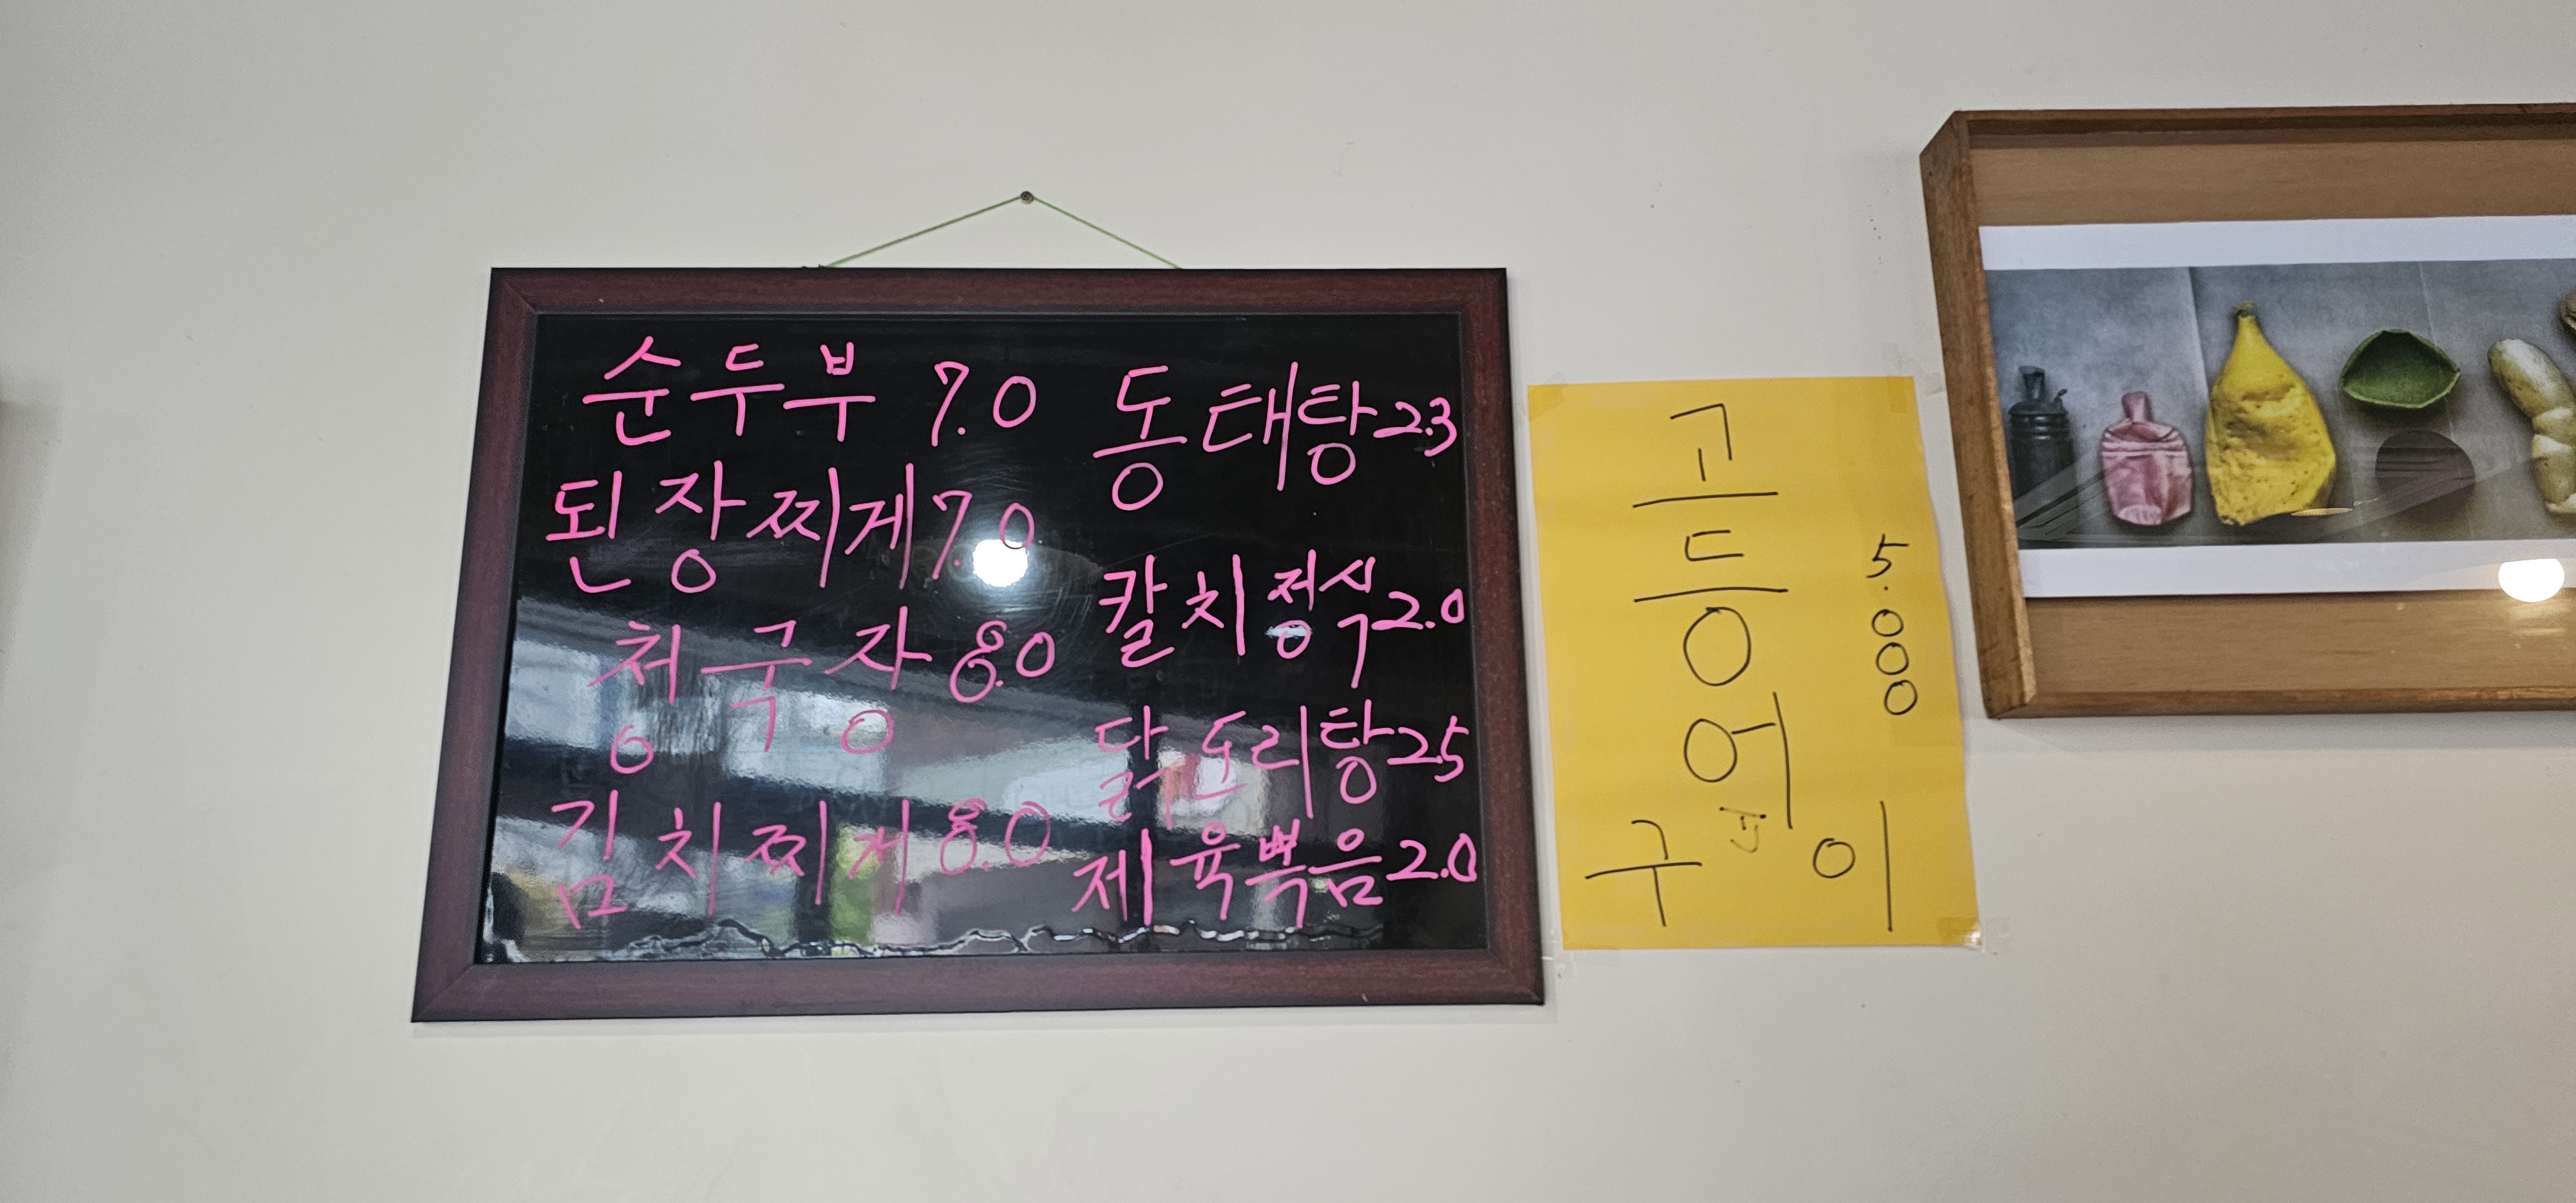 순두부 7.0
된장찌게 7.0
청국장 8.0
김치찌게 8.0
동태탕 2.3
칼치정식 2.0
닭도리탕 25
제육뽁음 2.0
고등어
구이
5.000